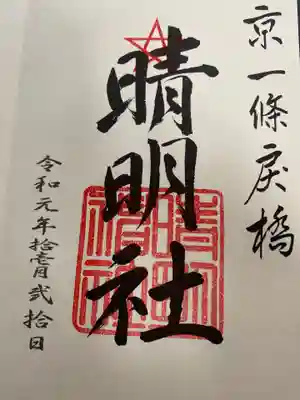 京一條戻橋
晴明社
晴明社
令和元年拾壹月弐拾日